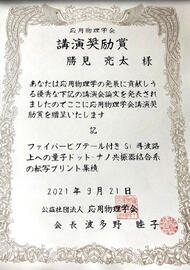 応用物理学会
講演奨励賞
勝見 亮太 様
あなたは応用物理学の発展に貢献しうる優秀な下記の講演会論文を発表されましたのでここに応用物理学会講演奨励賞を贈呈いたします
記
ファイバーピグテール付き Si 導波路
上への量子ドット・ナノ共振器結合系
の転写プリント集積
2021年9月21日
公益社団法人 応用物理学会
会長 波多野 睦子